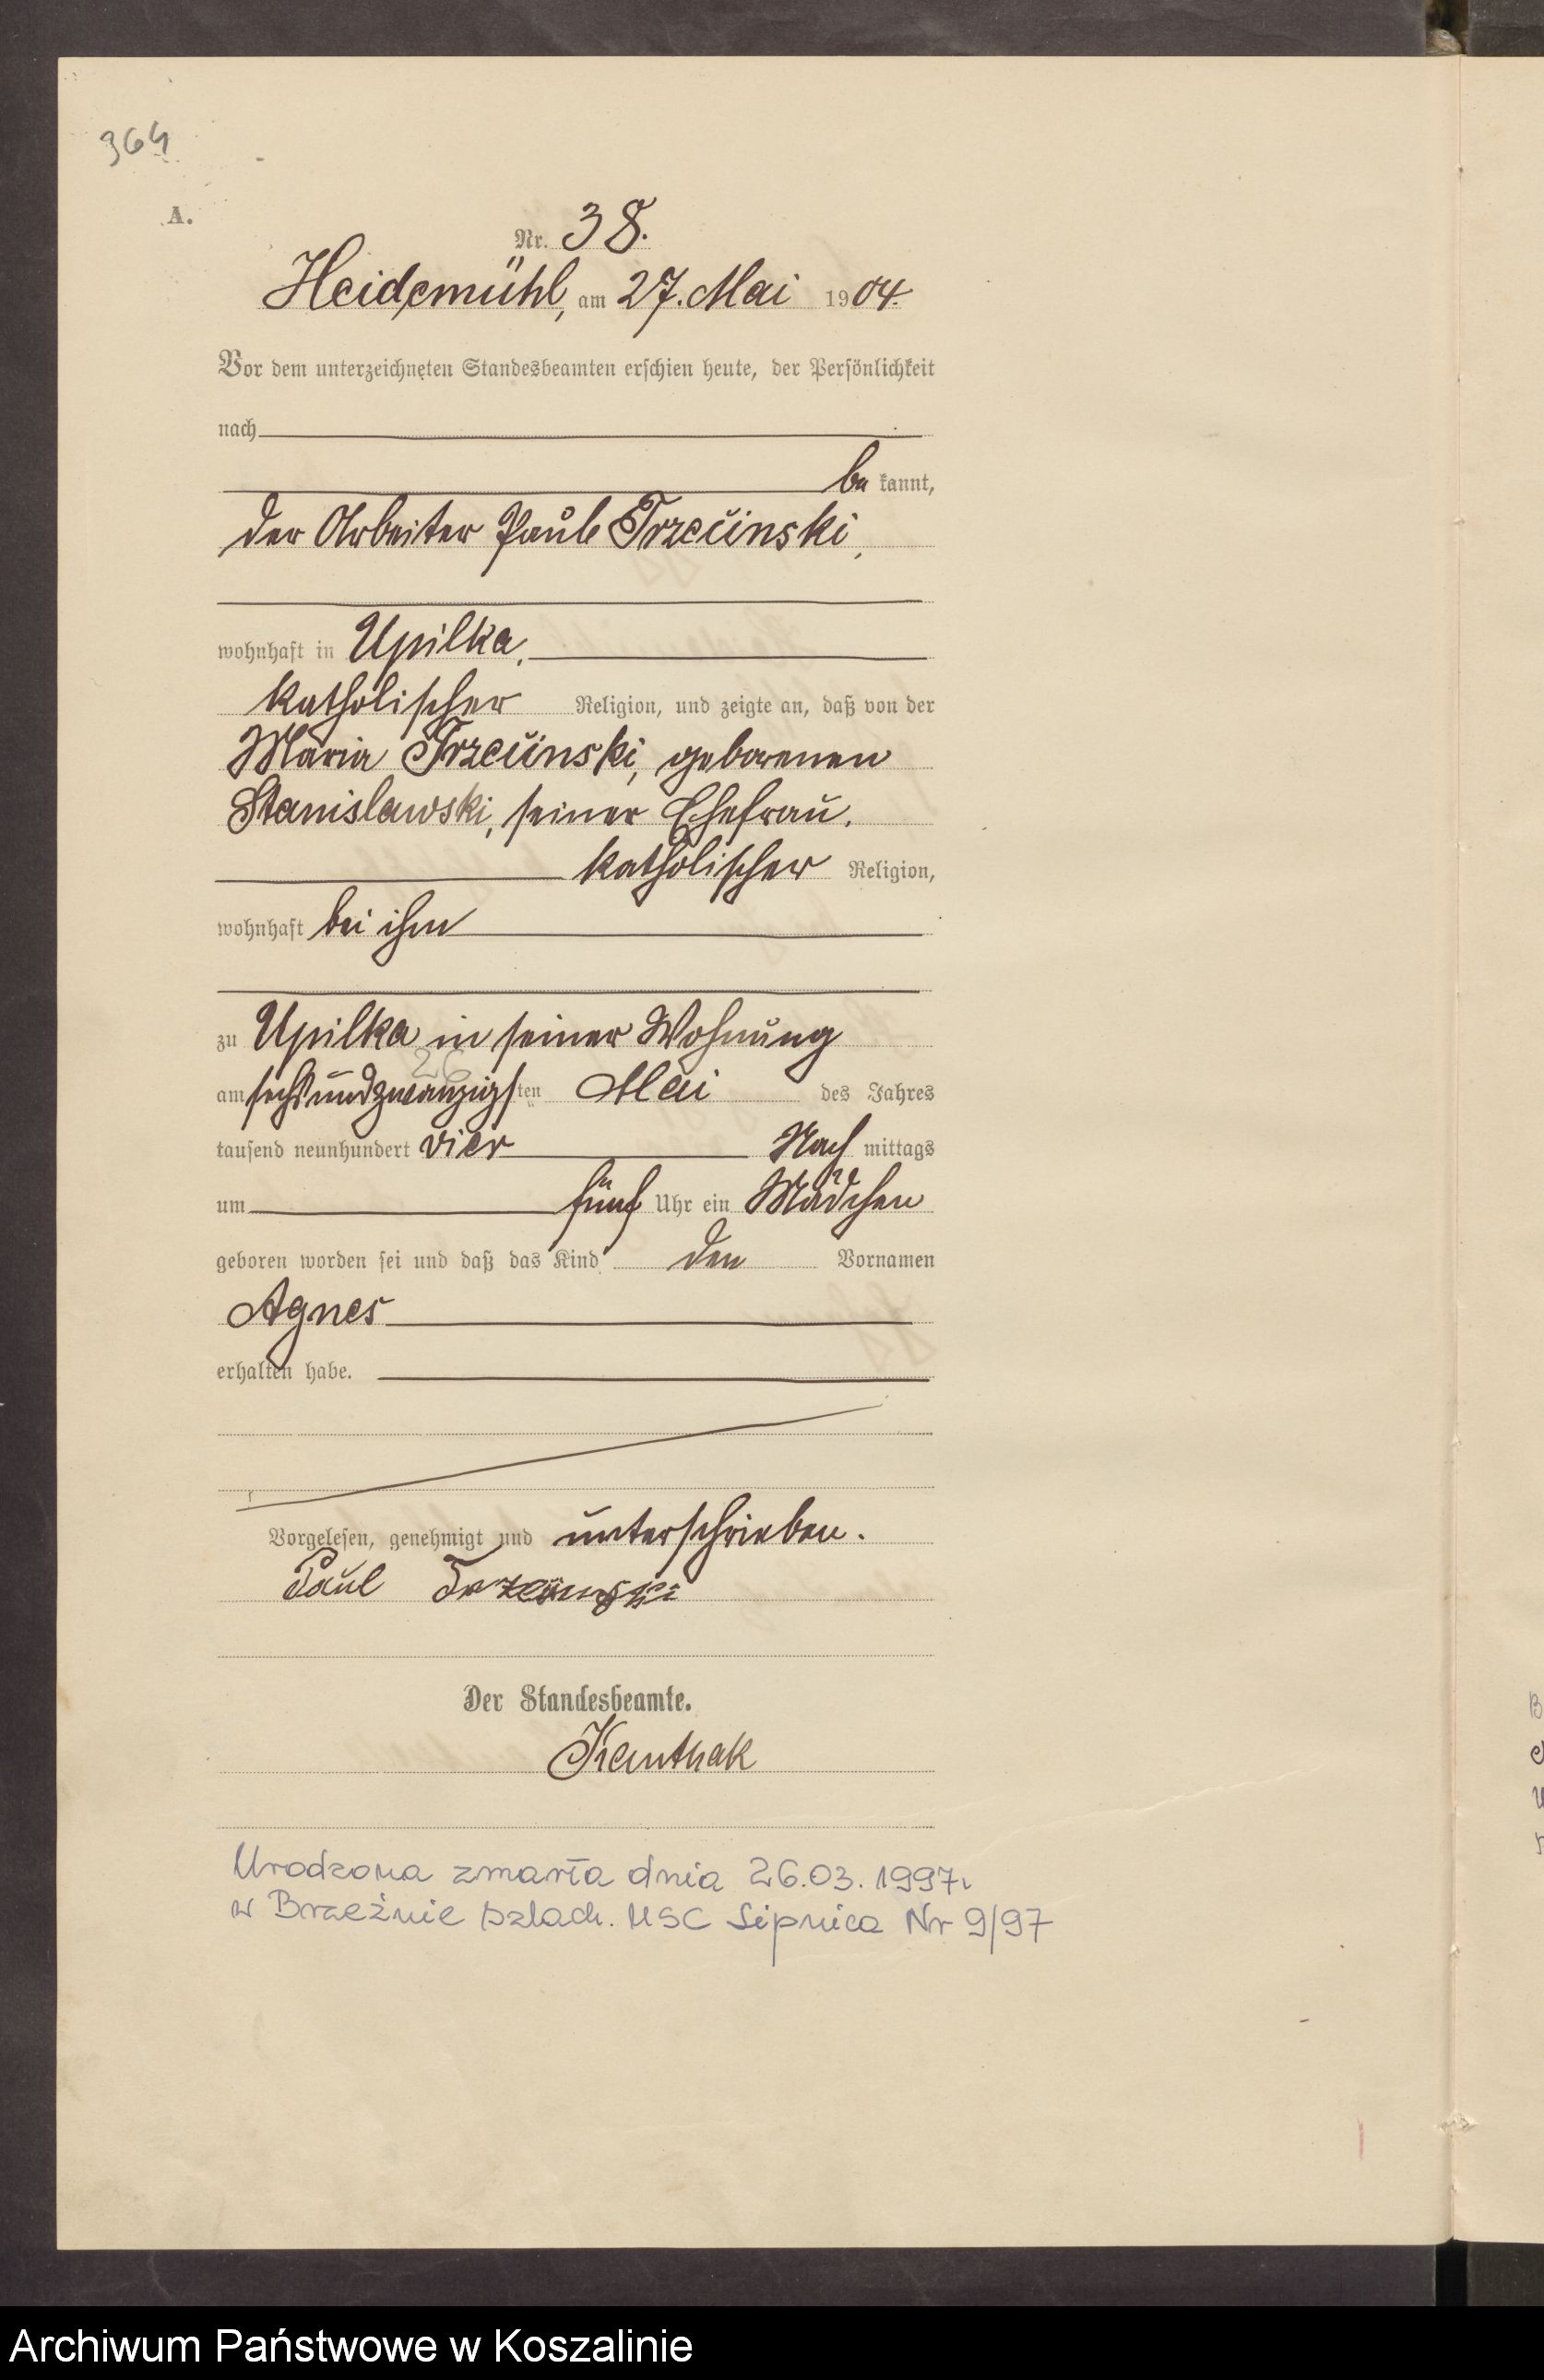 364
A.
Nr. 38.
Heidemühl, am 27. Mai 1904.
Vor dem unterzeichneten Standesbeamten erschien heute, der Persönlichkeit
nach
be kannt,
der Arbeiter Paul Trzecinski,
wohnhaft in Upilka,
katholischer Religion, und zeigte an, daß von der
Maria Trzecinski, geborenen
Stanislawski, seiner Ehefrau,
katholischer Religion,
wohnhaft bei ihm
zu Upilka in seiner Wohnung
26
am sechsundzwanzigsten Mai des Jahres
tausend neunhundert vier Nach mittags
um fünf Uhr ein Mädchen
geboren worden sei und daß das Kind den Vornamen
Agnes
erhalten habe.
Vorgelesen, genehmigt und unterschrieben.
Paul
Der Standesbeamte.
Kanthak
Urodzona zmarła dnia 26.03.1997r
w Brzeźnie Szlach. USC Lipnica Nr 9/97
Archiwum Państwowe w Koszalinie